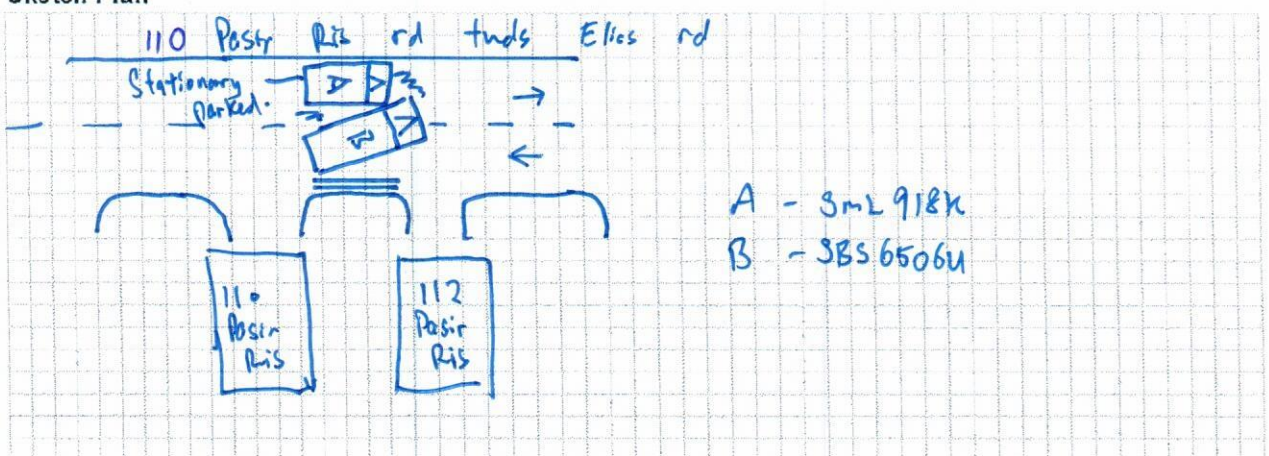 Sketch Plan
110 Pasir Ris rd twds Elias rd
Stationary
parked.
A - SML 918K
B - SBS6506U
110
Pasir
Ris
112
Pasir
Ris